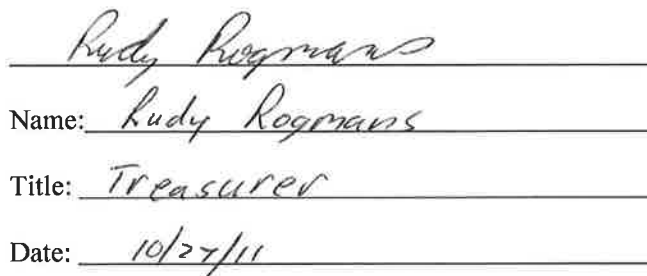 Rudy Rogmans
Name: Rudy Rogmans
Title: Treasurer
Date: 10/27/11